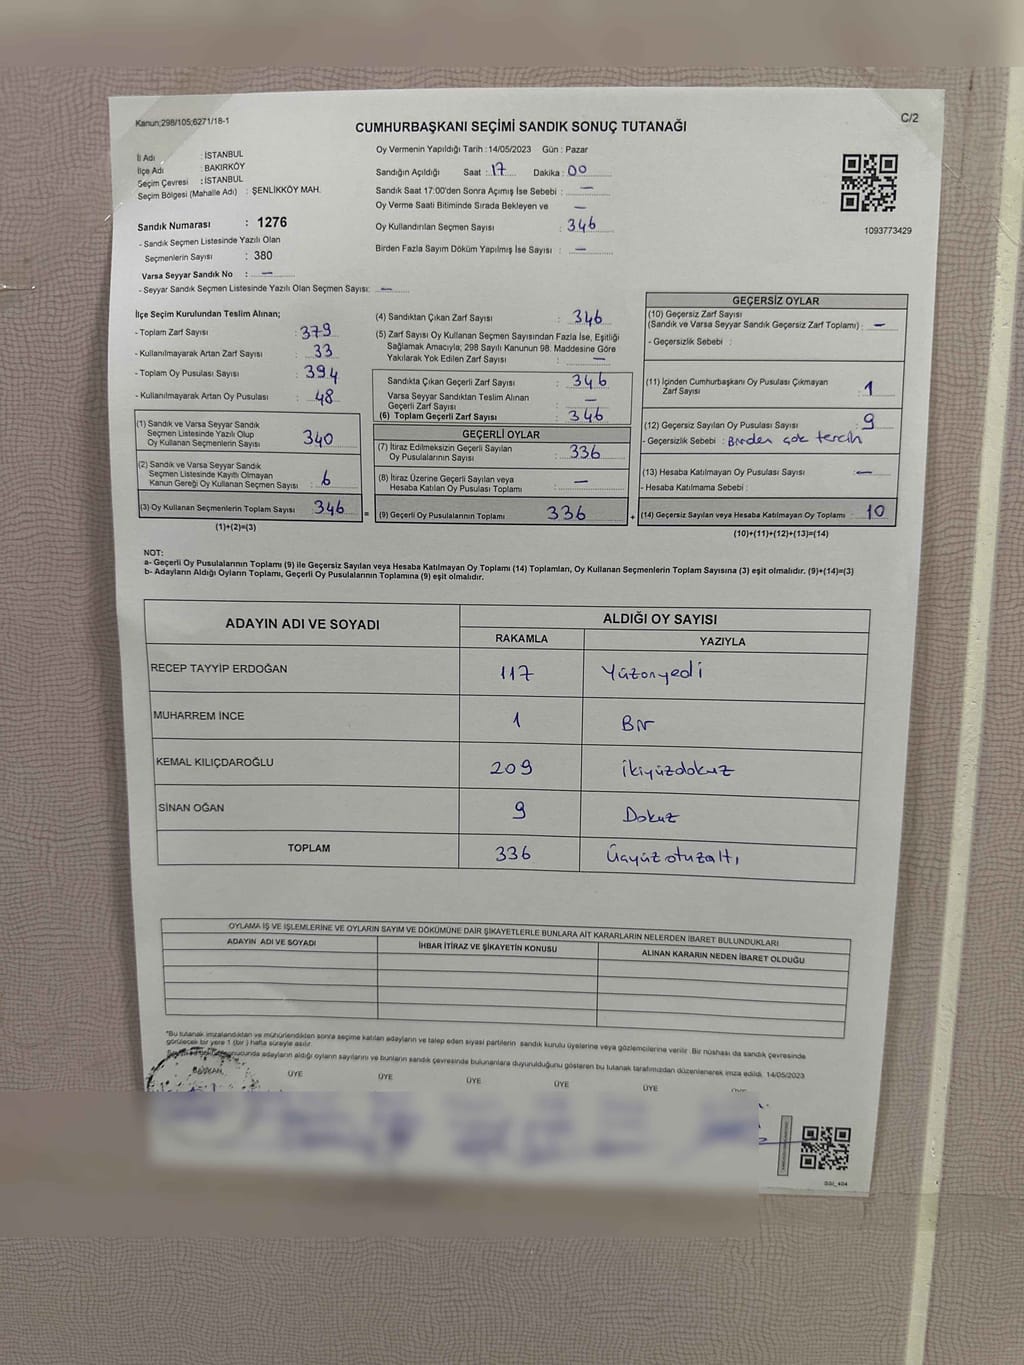 Kanun;298/105;6271/18-1
C/2
CUMHURBAŞKANI SEÇİMİ SANDIK SONUÇ TUTANAĞI
İl Adı : İSTANBUL
İlçe Adı : BAKIRKÖY
Seçim Çevresi : İSTANBUL
Seçim Bölgesi (Mahalle Adı) : ŞENLİKKÖY MAH.
Sandık Numarası : 1276
- Sandık Seçmen Listesinde Yazılı Olan
Seçmenlerin Sayısı : 380
Varsa Seyyar Sandık No : —
- Seyyar Sandık Seçmen Listesinde Yazılı Olan Seçmen Sayısı: —
Oy Vermenin Yapıldığı Tarih : 14/05/2023 Gün : Pazar
Sandığın Açıldığı Saat : 17 Dakika : 00
Sandık Saat 17:00'den Sonra Açımış İse Sebebi : —
Oy Verme Saati Bitiminde Sırada Bekleyen ve —
Oy Kullandırılan Seçmen Sayısı : 346
Birden Fazla Sayım Döküm Yapılmış İse Sayısı : —
1093773429
İlçe Seçim Kurulundan Teslim Alınan;
- Toplam Zarf Sayısı : 379
- Kullanılmayarak Artan Zarf Sayısı : 33
- Toplam Oy Pusulası Sayısı : 394
- Kullanılmayarak Artan Oy Pusulası : 48
(1) Sandık ve Varsa Seyyar Sandık
Seçmen Listesinde Yazılı Olup
Oy Kullanan Seçmenlerin Sayısı : 340
(2) Sandık ve Varsa Seyyar Sandık
Seçmen Listesinde Kayıtlı Olmayan
Kanun Gereği Oy Kullanan Seçmen Sayısı : 6
(3) Oy Kullanan Seçmenlerin Toplam Sayısı : 346
(1)+(2)=(3)
=
(4) Sandıktan Çıkan Zarf Sayısı : 346
(5) Zarf Sayısı Oy Kullanan Seçmen Sayısından Fazla İse, Eşitliği
Sağlamak Amacıyla; 298 Sayılı Kanunun 98. Maddesine Göre
Yakılarak Yok Edilen Zarf Sayısı : —
Sandıkta Çıkan Geçerli Zarf Sayısı : 346
Varsa Seyyar Sandıktan Teslim Alınan
Geçerli Zarf Sayısı : —
(6) Toplam Geçerli Zarf Sayısı : 346
GEÇERLİ OYLAR
(7) İtiraz Edilmeksizin Geçerli Sayılan
Oy Pusulalarının Sayısı : 336
(8) İtiraz Üzerine Geçerli Sayılan veya
Hesaba Katılan Oy Pusulası Toplamı : —
(9) Geçerli Oy Pusulalarının Toplamı : 336
+
GEÇERSİZ OYLAR
(10) Geçersiz Zarf Sayısı
(Sandık ve Varsa Seyyar Sandık Geçersiz Zarf Toplamı) : —
- Geçersizlik Sebebi :
(11) İçinden Cumhurbaşkanı Oy Pusulası Çıkmayan
Zarf Sayısı : 1
(12) Geçersiz Sayılan Oy Pusulası Sayısı : 9
- Geçersizlik Sebebi : Birden çok tercih
(13) Hesaba Katılmayan Oy Pusulası Sayısı : —
- Hesaba Katılmama Sebebi :
(14) Geçersiz Sayılan veya Hesaba Katılmayan Oy Toplamı : 10
(10)+(11)+(12)+(13)=(14)
NOT:
a- Geçerli Oy Pusulalarının Toplamı (9) ile Geçersiz Sayılan veya Hesaba Katılmayan Oy Toplamı (14) Toplamları, Oy Kullanan Seçmenlerin Toplam Sayısına (3) eşit olmalıdır. (9)+(14)=(3)
b- Adayların Aldığı Oyların Toplamı, Geçerli Oy Pusulalarının Toplamına (9) eşit olmalıdır.
ADAYIN ADI VE SOYADI ALDIĞI OY SAYISI
RAKAMLA YAZIYLA
RECEP TAYYİP ERDOĞAN 117 Yüzonyedi
MUHARREM İNCE 1 Bir
KEMAL KILIÇDAROĞLU 209 İkiyüzdokuz
SİNAN OĞAN 9 Dokuz
TOPLAM 336 Üçyüzotuzaltı
OYLAMA İŞ VE İŞLEMLERİNE VE OYLARIN SAYIM VE DÖKÜMÜNE DAİR ŞİKAYETLERLE BUNLARA AİT KARARLARIN NELERDEN İBARET BULUNDUKLARI
ADAYIN ADI VE SOYADI İHBAR İTİRAZ VE ŞİKAYETİN KONUSU ALINAN KARARIN NEDEN İBARET OLDUĞU
"Bu tutanak imzalandıktan ve mühürlendikten sonra seçime katılan adayların ve talep eden siyasi partilerin sandık kurulu üyelerine veya gözlemcilerine verilir. Bir nüshası da sandık çevresinde
görülecek bir yere 1 (bir) hafta süreyle asılır.
sonucunda adayların aldığı oyların sayılarını ve bunların sandık çevresinde bulunanlara duyurulduğunu gösteren bu tutanak tarafımızdan düzenlenerek imza edildi. 14/05/2023
ÜYE ÜYE ÜYE ÜYE ÜYE ÜYE